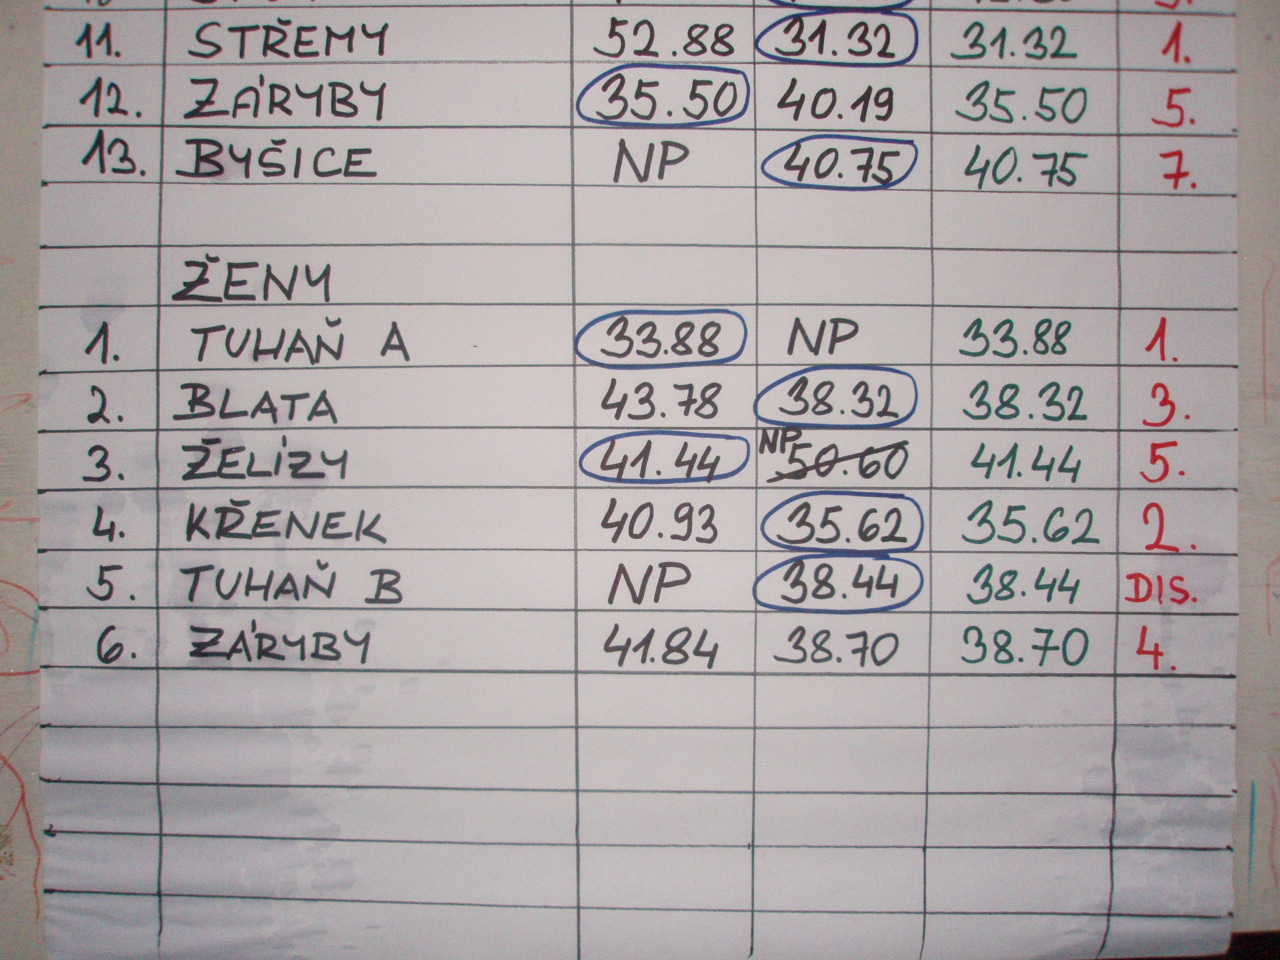 11. STŘEMY 52.88 31.32 31.32 1.
12. ZÁRYBY 35.50 40.19 35.50 5.
13. BYŠICE NP 40.75 40.75 7.
ŽENY
1. TUHAŇ A 33.88 NP 33.88 1.
2. BLATA 43.78 38.32 38.32 3.
3. ŽELÍZY 41.44 NP 50.60 41.44 5.
4. KŘENEK 40.93 35.62 35.62 2.
5. TUHAŇ B NP 38.44 38.44 DIS.
6. ZÁRYBY 41.84 38.70 38.70 4.